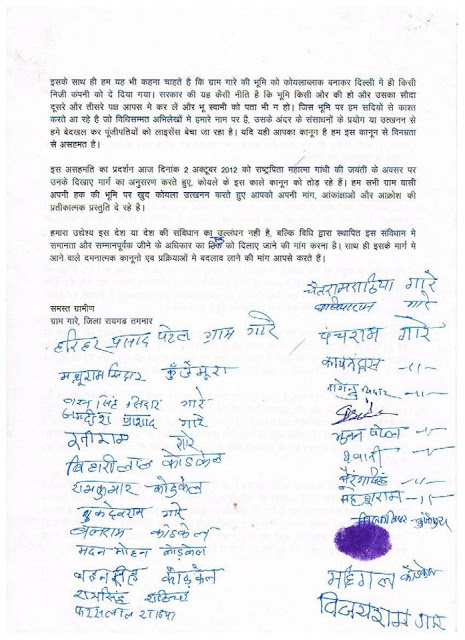 इसके साथ ही हम यह भी कहना चाहते है कि ग्राम गारे की भूमि को कोयलाब्लाक बनाकर दिल्ली में ही किसी
निजी कंपनी को दे दिया गया। सरकार की यह कैसी नीति है कि भूमि किसी और की हो और उसका सौदा
दूसरे और तीसरे पक्ष आपस मे कर लें और भू स्वामी को पता भी न हो। जिस भूमि पर हम सदियों से काश्त
करते आ रहे है जो विधिसम्मत अभिलेखों मे हमारे नाम पर है, उसके अंदर के संसाधनों के प्रयोग या उत्खनन से
हमे बेदखल कर पूंलीपतियों को लाइसेंस बेचा जा रहा है। यदि यही आपका कानून है हम इस कानून से विनम्रता
से असहमत है।
इस असहमति का प्रदर्शन आज दिनांक 2 अक्टूबर 2012 को राष्ट्रपिता महात्मा गांधी की जयंती के अवसर पर
उनके दिखाए मार्ग का अनुसरण करते हुए, कोयले के इस काले कानून को तोड़ रहे हैं। हम सभी ग्राम वासी
अपनी हक की भूमि पर खुद कोयला उत्खनन करते हुए आपको अपनी मांग, आंकांक्षाओं और आक्रोश की
प्रतीकात्मक प्रस्तुति दे रहे है।
हमारा उद्येश्य इस देश या देश की संविधान का उल्लंघन नही है, बल्कि विधि द्वारा स्थापित इस संविधान मे
समानता और सम्मानपूर्वक जीने के अधिकार का को दिलाए जाने की मांग करना है। साथ ही इसके मार्ग मे
आने वाले दमनात्मक कानूनो एव प्रक्रियाओं मे बदलाव लाने की मांग आपसे करते हैं।
समस्त ग्रामीण
ग्राम गारे, जिला रायगढ तमनार
हरिहर प्रसाद पटेल ग्राम गारे
कुँजेमुरा
सिंह सिदार गारे
जगदीश प्रसाद गारे
रतीराम गारे
बिहारीलाल कोडकेल
रामकुमार कोडकेल
शुकदेवराम गारे
बलराम कोडकेल
मदन मोहन कोडकेल
कोडकेल
रामसिंह राठिया
राठिया
चैतराम राठिया गारे
गारे
पंचराम गारे
-"-
-"-
-"-
भवानी -"-
-"-
महेशराम -"-
कोडकेल
विजयराम गारे